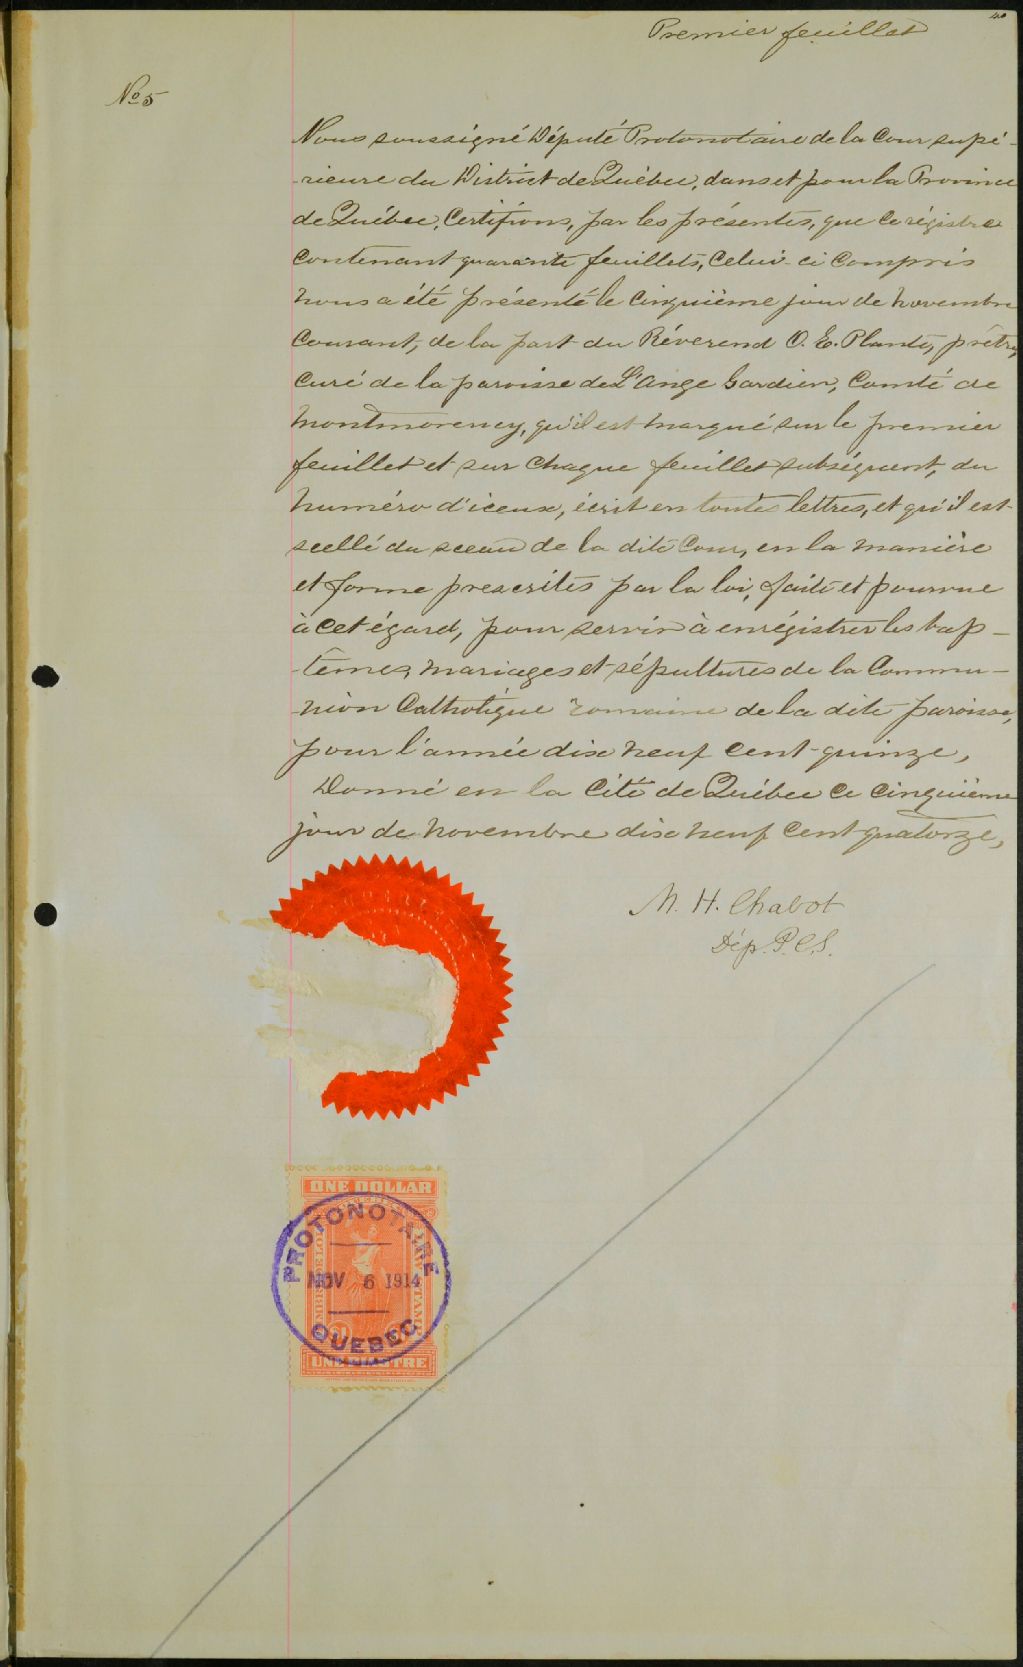 40
Premier feuillet
No 5
Nous soussigné Député Protonotaire de la Cour supé-
-rieure du District de Québec, dans et pour la Province
de Québec, Certifions, par les présentes, que ce régistre
contenant quarante feuillets, celui-ci compris
nous a été présenté le cinquième jour de novembre
courant, de la part du Révérend O. E. Plante, prêtre,
curé de la paroisse de L'Ange Gardien, Comté de
Montmorency, qu'il est marqué sur le premier
feuillet et sur chaque feuillet subséquent, du
numéro d'iceux, écrit en toutes lettres, et qu'il est
scellé du sceau de la dite Cour, en la manière
et forme prescrites par la loi, faite et pourvue
à cet égard, pour servir à enrégistrer les bap-
-têmes, mariages et sépultures de la Commu-
-nion Catholique romaine de la dite paroisse,
pour l'année dix neuf cent quinze,
Donné en la Cité de Québec ce cinquième
jour de novembre dix neuf cent quatorze,
M. H. Chabot
Dép. P.C.S.
ONE DOLLAR
PROTONOTAIRE
NOV 6 1914
QUEBEC
UNE PIASTRE